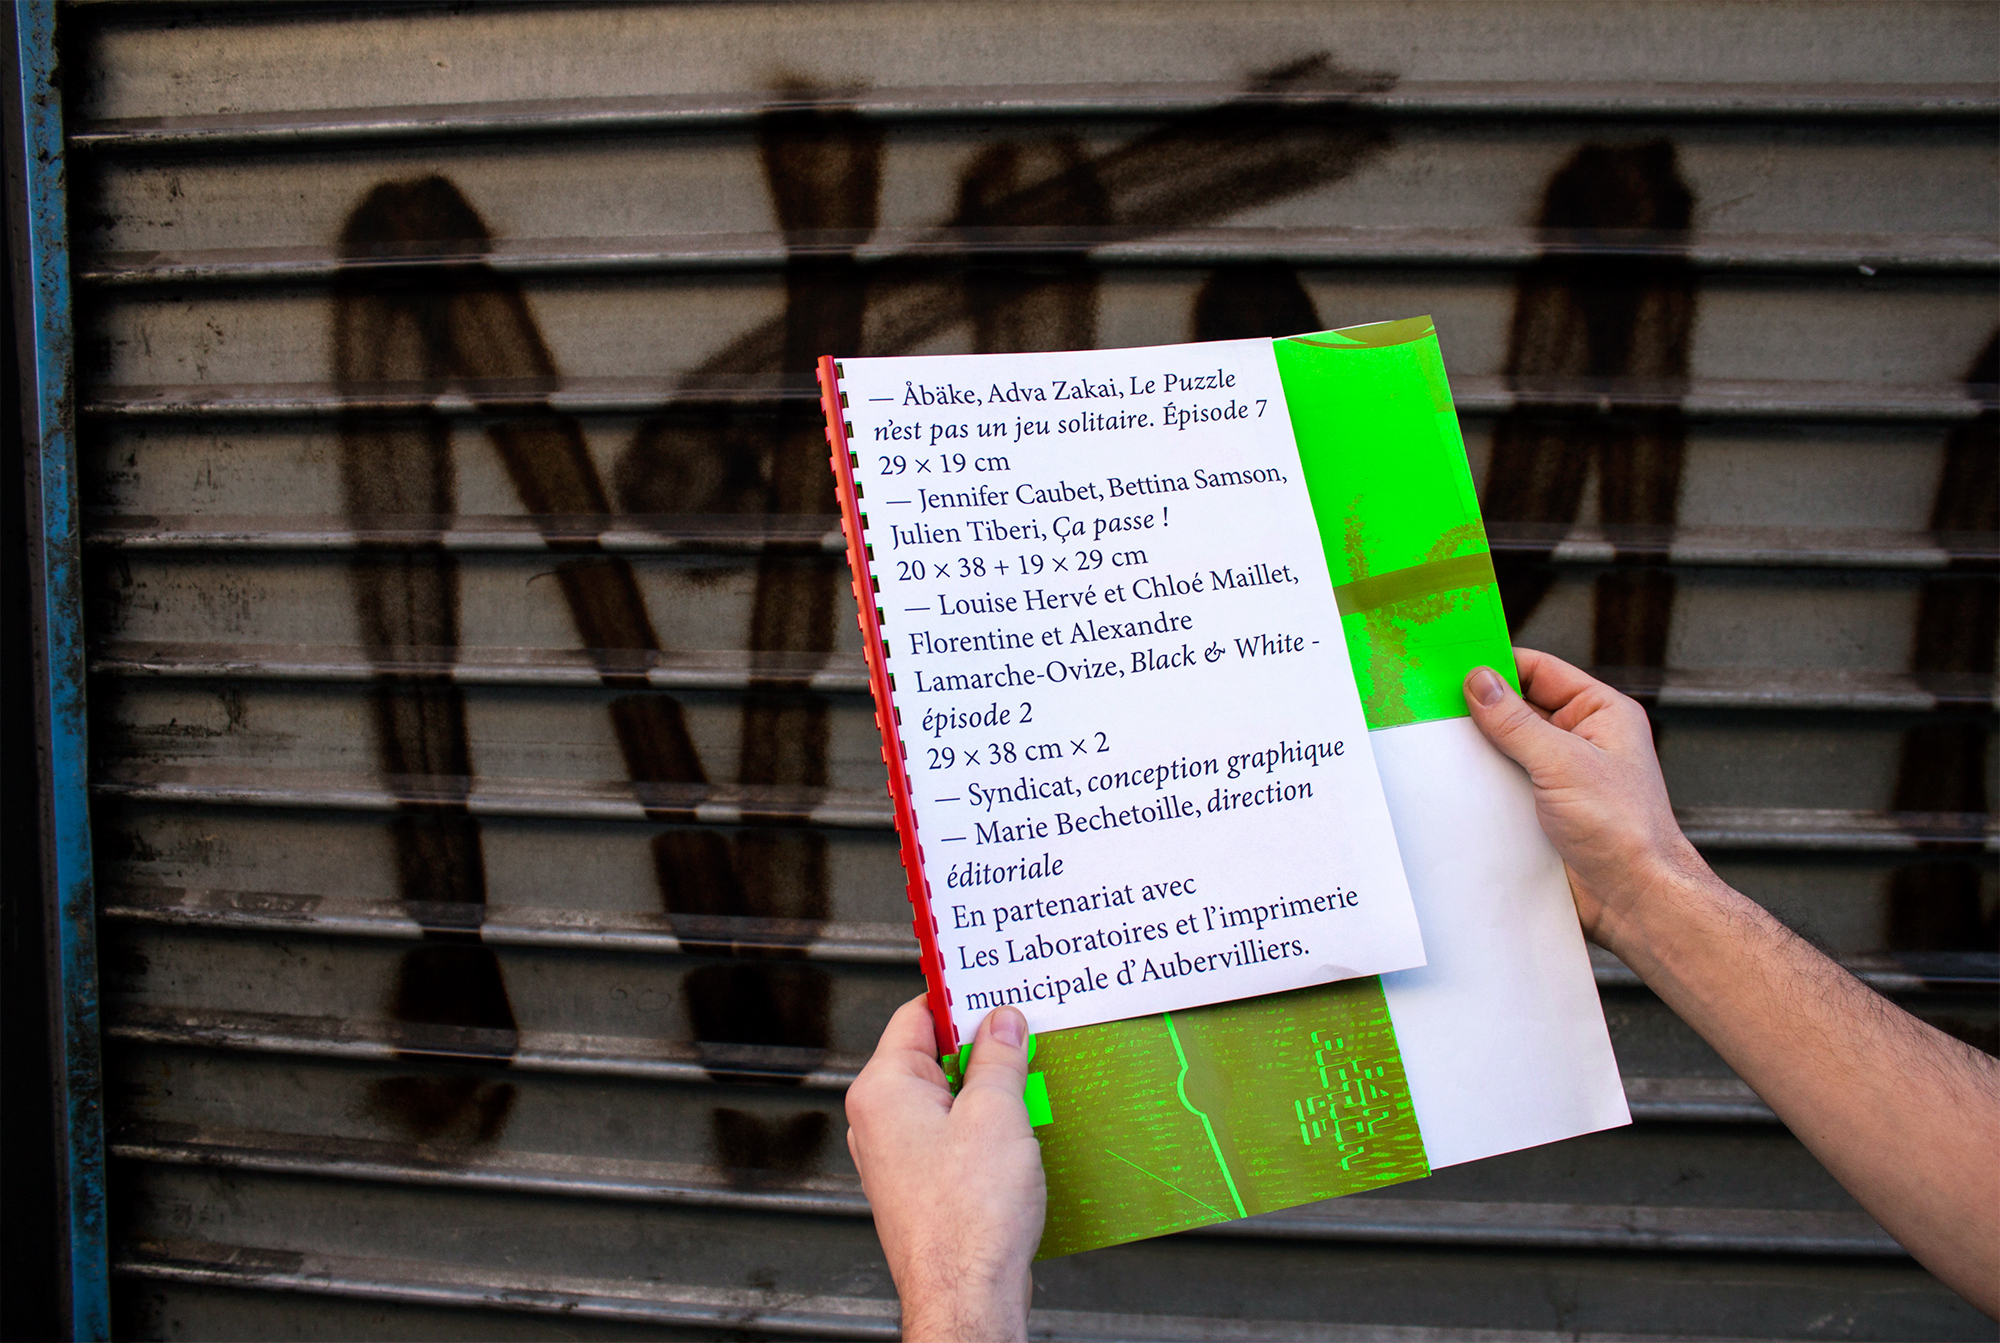 — Åbäke, Adva Zakai, Le Puzzle
n’est pas un jeu solitaire. Épisode 7
29 × 19 cm
— Jennifer Caubet, Bettina Samson,
Julien Tiberi, Ça passe !
20 × 38 + 19 × 29 cm
— Louise Hervé et Chloé Maillet,
Florentine et Alexandre
Lamarche-Ovize, Black & White -
épisode 2
29 × 38 cm × 2
— Syndicat, conception graphique
— Marie Bechetoille, direction
éditoriale
En partenariat avec
Les Laboratoires et l’imprimerie
municipale d’Aubervilliers.